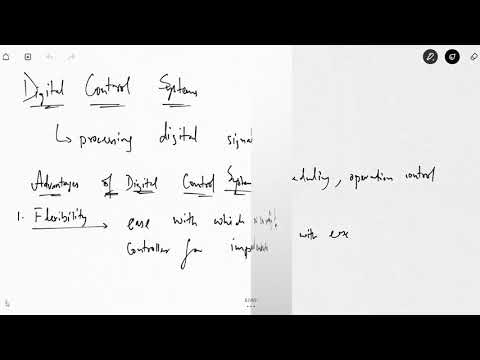 Digital Control Systems
↳ processing digital signal
Advantages of Digital Control System scheduling, operation control
1. Flexibility → ease with which
Controller for with ease